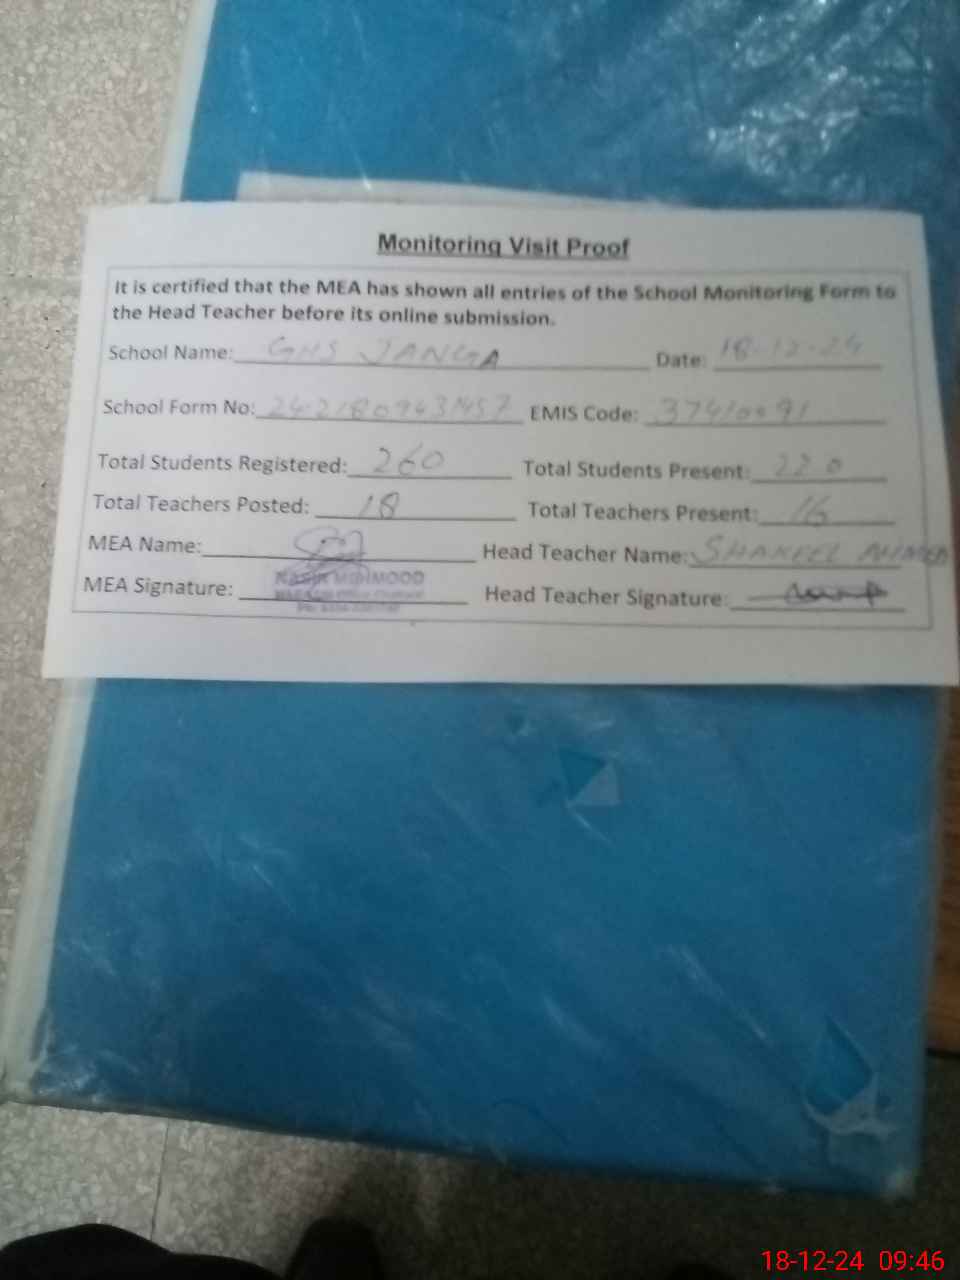 Monitoring Visit Proof
It is certified that the MEA has shown all entries of the School Monitoring Form to
the Head Teacher before its online submission.
School Name: GHS JANGA Date: 18-12-24
School Form No: EMIS Code: 37410091
Total Students Registered: 260 Total Students Present: 220
Total Teachers Posted: 18 Total Teachers Present: 16
MEA Name: Head Teacher Name: SHAKEEL AHMED
MEA Signature: NASIR MEHMOOD Head Teacher Signature:
18-12-24 09:46